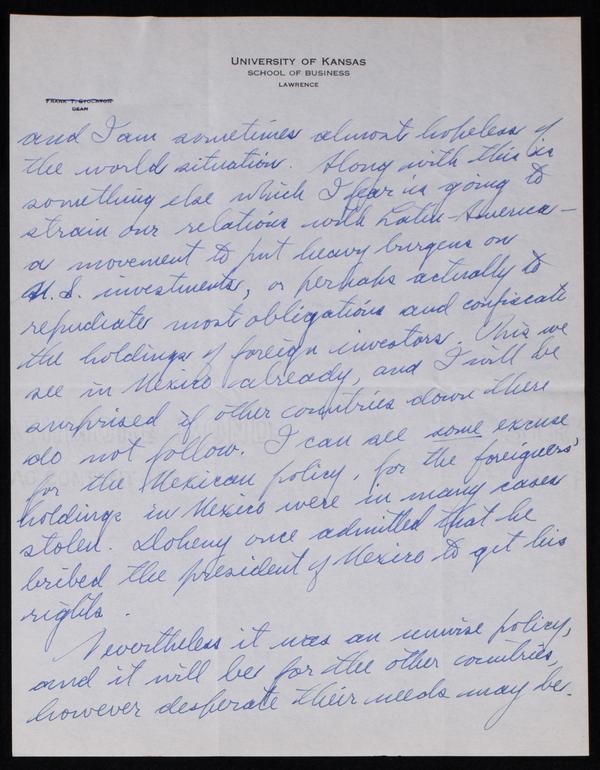 UNIVERSITY OF KANSAS
SCHOOL OF BUSINESS
LAWRENCE
FRANK T. STOCKTON
DEAN
and I am sometimes almost hopeless of
the world situation. Along with this is
something else which I fear is going to
strain our relations with Latin-America –
a movement to put heavy burgens on
U.S. investments, or perhaps actually to
repudiate most obligations and confiscate
the holdings of foreign investors. This we
see in Mexico already, and I will be
surprised if other countries down there
do not follow. I can see some excuse
for the Mexican policy, for the foreigners'
holdings in Mexico were in many cases
stolen. Doheny once admitted that he
bribed the president of Mexico to get his
rights.
Nevertheless it was an unwise policy,
and it will be for the other countries,
however desperate their needs may be.